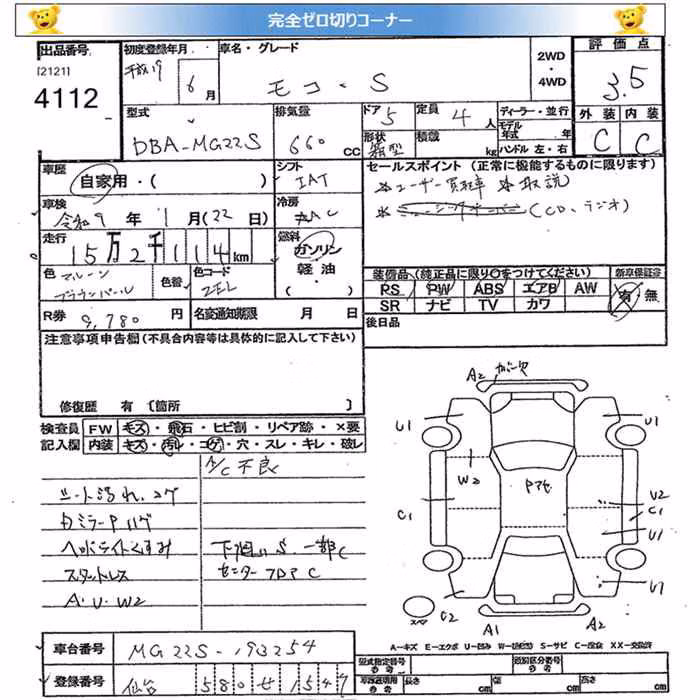 完全ゼロ切りコーナー
出品番号
[2121]
4112
初度登録年月
平成19 6月
車名・グレード
モコ・S
2WD
・
4WD
評価点
3.5
型式
DBA-MG22S
排気量
660 CC
ドア 5
定員 4人
形状 箱型
積載 kg
ディーラー・並行
モデル年式 年
ハンドル 左・右
外装 内装
C C
車歴
自家用・( )
シフト
IAT
車検
令和9年1月(22日)
冷房
AC
セールスポイント (正常に機能するものに限ります)
*ユーザー買取車 *取説
* (CD、ラジオ)
走行
15万2千114km
燃料
ガソリン
軽油
( ・ )
色 マルーン
ブラウンパール
色替
色コード
ZEL
装備品 (純正品に限り○をつけてください)
新車保証書
PS PW ABS エアB AW
SR ナビ TV カワ
有・無
R券 9,780 円
名変通知期限 月 日
後日品
注意事項申告欄 (不具合内容等は具体的に記入して下さい)
修復歴 有 〔箇所 〕
検査員記入欄
FW キズ・飛石・ヒビ割・リペア跡・×要
内装 キズ・汚れ・コゲ・穴・スレ・キレ・破レ
A/C不良
シート汚れ、コゲ
ヘッドライトくすみ
スタッドレス
A・U・W2
下廻りS 一部C
A2
U1
U1
W2
C1
U2
C1
U1
U1
C2
スペア
A1
A2
A-キズ E-エクボ U-凹み S-サビ C-腐食 XX-交換済
車台番号
MG22S-193254
登録番号
仙台 580 せ 1549
型式指定番号
参考
類別区分番号
参考
長さ cm
幅 cm
高さ cm